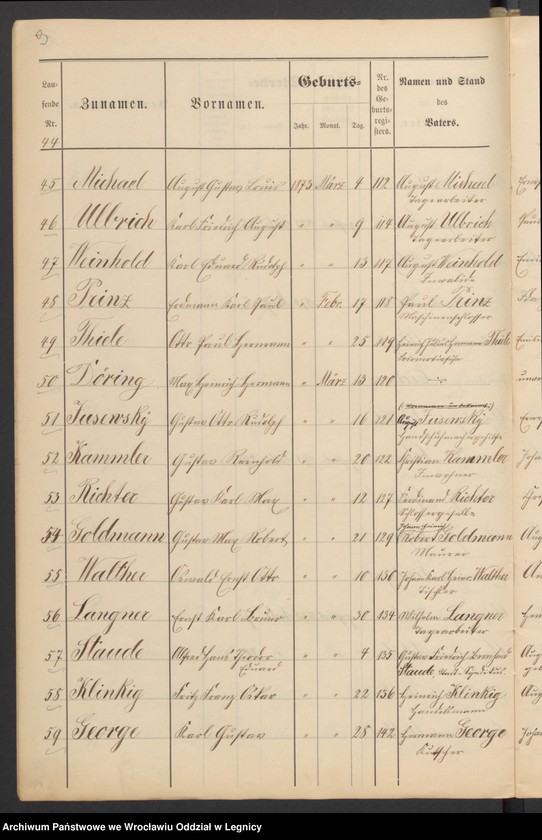 Lau-
fende
Nr.
Zunamen.
Vornamen.
Geburts-
Jahr. Monat. Tag.
Nr.
des
Ge-
burts-
regi-
sters.
Namen und Stand
des
Vaters.
44
45 Michael August Gustav Louis 1873 März 4 112 August Michael
Tagearbeiter
46 Ulbrich Karl Friedrich August " " 9 114 August Ulbrich
Tagearbeiter
47 Weinhold Karl Eduard Rudolph " " 13 117 August Weinhold
Invalide
48 Peinz Erdmann Karl Paul " Febr. 17 118 Paul Peinz
Maschinenschlosser
49 Thiele Otto Paul Hermann " " 25 119 Heinrich Hermann Thiele
50 Döring Max Heinrich Hermann " März 13 120 —
51 Jusewsky Gustav Otto Rudolph " " 16 121 August Jusewsky
52 Kammler Gustav Reinhold " " 20 122 Christian Kammler
Inwohner
53 Richter Gustav Karl Max " " 12 127 Ferdinand Richter
Schlossergeselle
54 Goldmann Gustav Max Robert " " 21 129 Robert Goldmann
Maurer
55 Walther Oswald Ernst Otto " " 10 130 Johann Karl Heinr. Walther
Tischler
56 Langner Ernst Karl Bruno " " 30 134 Wilhelm Langner
Tagearbeiter
57 Staude Alfred Hans Theodor " " 4 135 Gustav Friedrich Bernhard
Eduard
Staude
58 Klinkig Fritz Franz Oskar " " 22 136 Heinrich Klinkig
Handelsmann
59 George Karl Gustav " " 28 142 Hermann George
Kutscher
Archiwum Państwowe we Wrocławiu Oddział w Legnicy